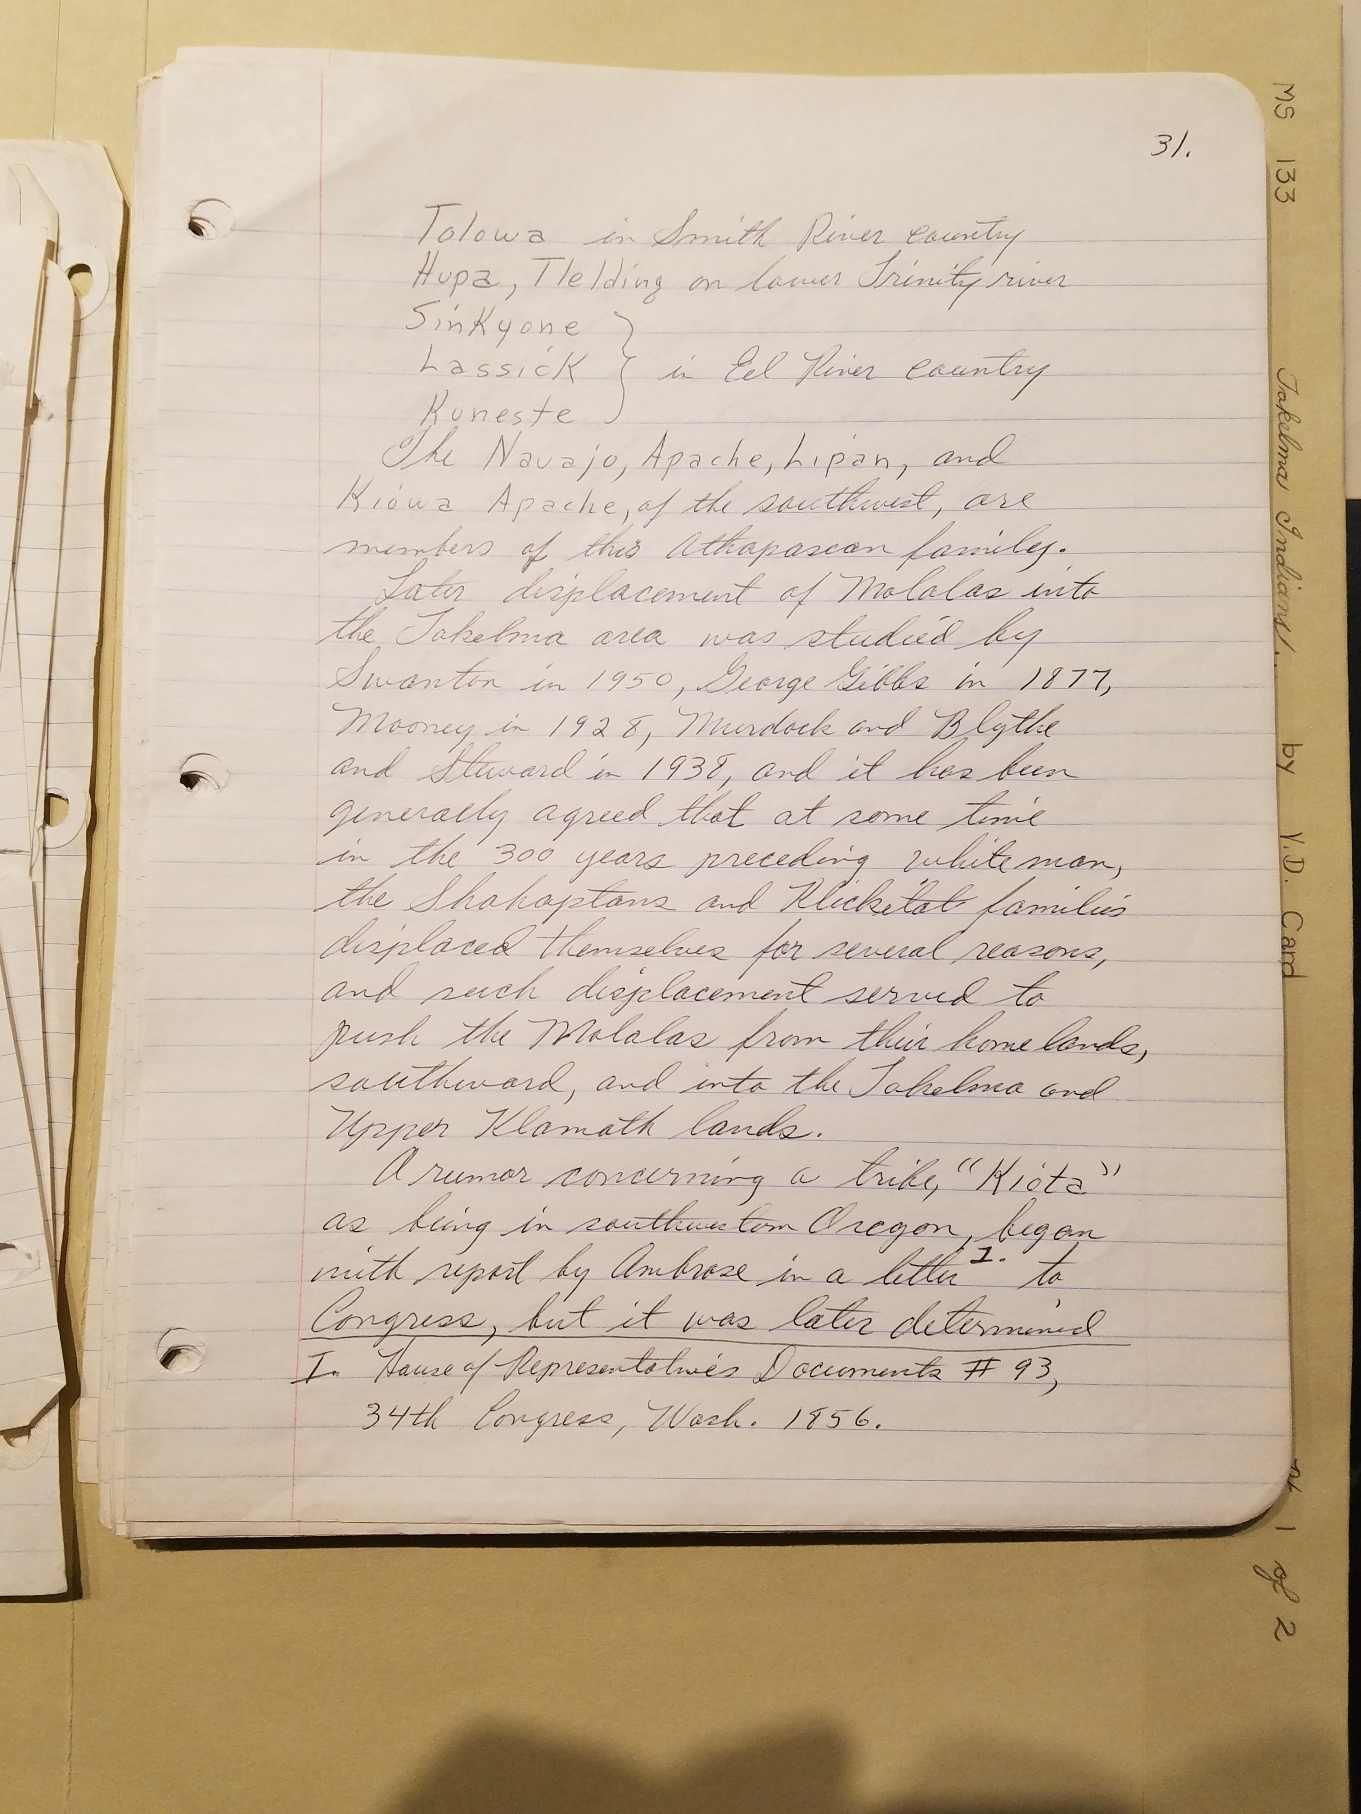 31.
Tolowa in Smith River country
Hupa, Tlelding on lower Trinity river
Sinkyone
Lassick } in Eel River country
Kuneste
The Navajo, Apache, Lipan, and
Kiowa Apache, of the southwest, are
members of this Athapascan family.
Later displacement of Molalas into
the Takelma area was studied by
Swanton in 1950, George Gibbs in 1877,
Mooney in 1928, Murdock and Blythe
and Steward in 1938, and it has been
generally agreed that at some time
in the 300 years preceding white man,
the Shahaptans and Klickitat families
displaced themselves for several reasons,
and such displacement served to
push the Molalas from their home lands,
southward, and into the Takelma and
Upper Klamath lands.
A rumor concerning a tribe, "Kiota"
as being in southwestern Oregon, began
with report by Ambrose in a letter 1. to
Congress, but it was later determined
1. House of Representatives Documents # 93,
34th Congress, Wash. 1856.
MS 133 Takelma Indians/. by V.D. Card 1 of 2